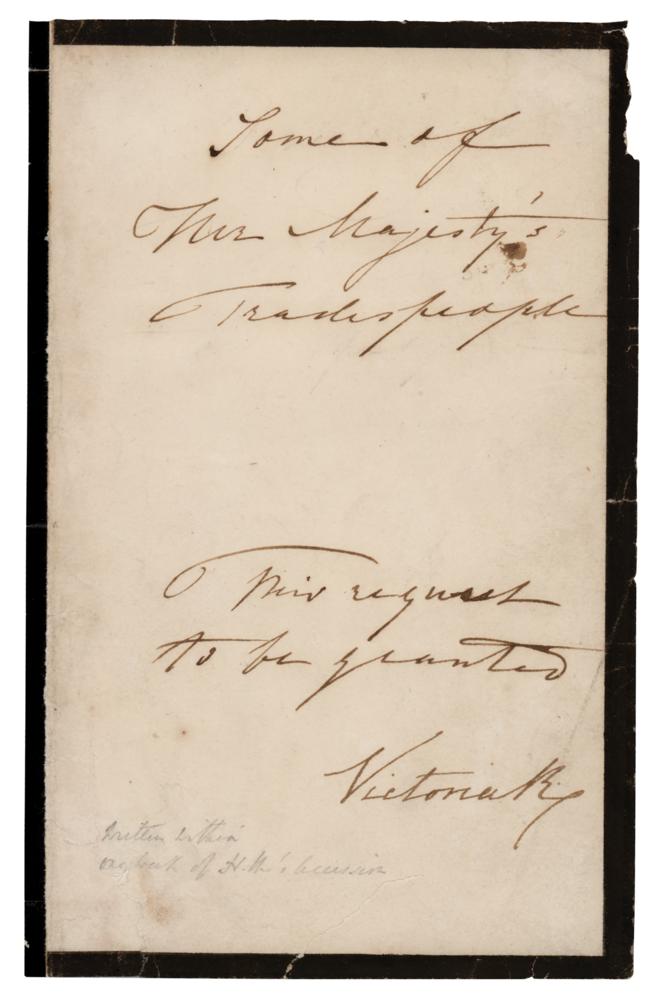 Some of
Her Majesty's
Tradespeople
This request
to be granted
Victoria R
Written within
one week of H.M.'s Accession